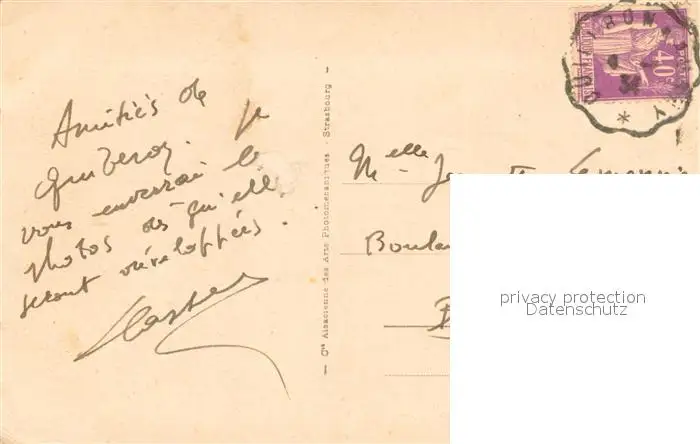 Amitiés de
Quiberon. je
vous enverrai les
photos dès qu'elles
seront développées.
Cie Alsacienne des Arts Photomécaniques - Strasbourg
POSTES
40c
Melle
Boulan
privacy protection
Datenschutz